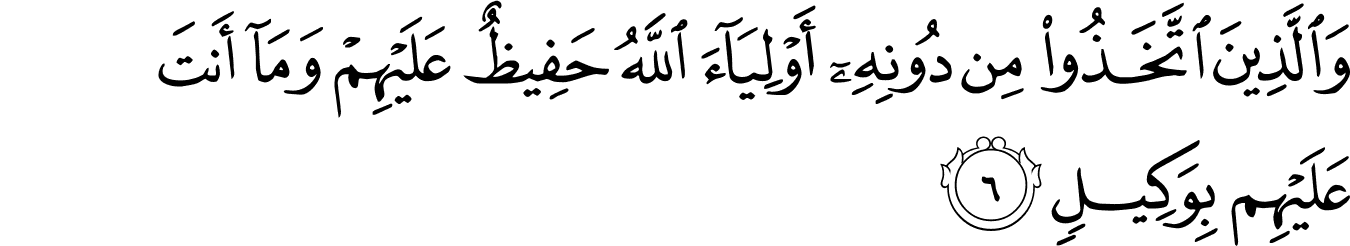 وَٱلَّذِينَ ٱتَّخَذُوا۟ مِن دُونِهِۦٓ أَوْلِيَآءَ ٱللَّهُ حَفِيظٌ عَلَيْهِمْ وَمَآ أَنتَ
عَلَيْهِم بِوَكِيلٍ ٦